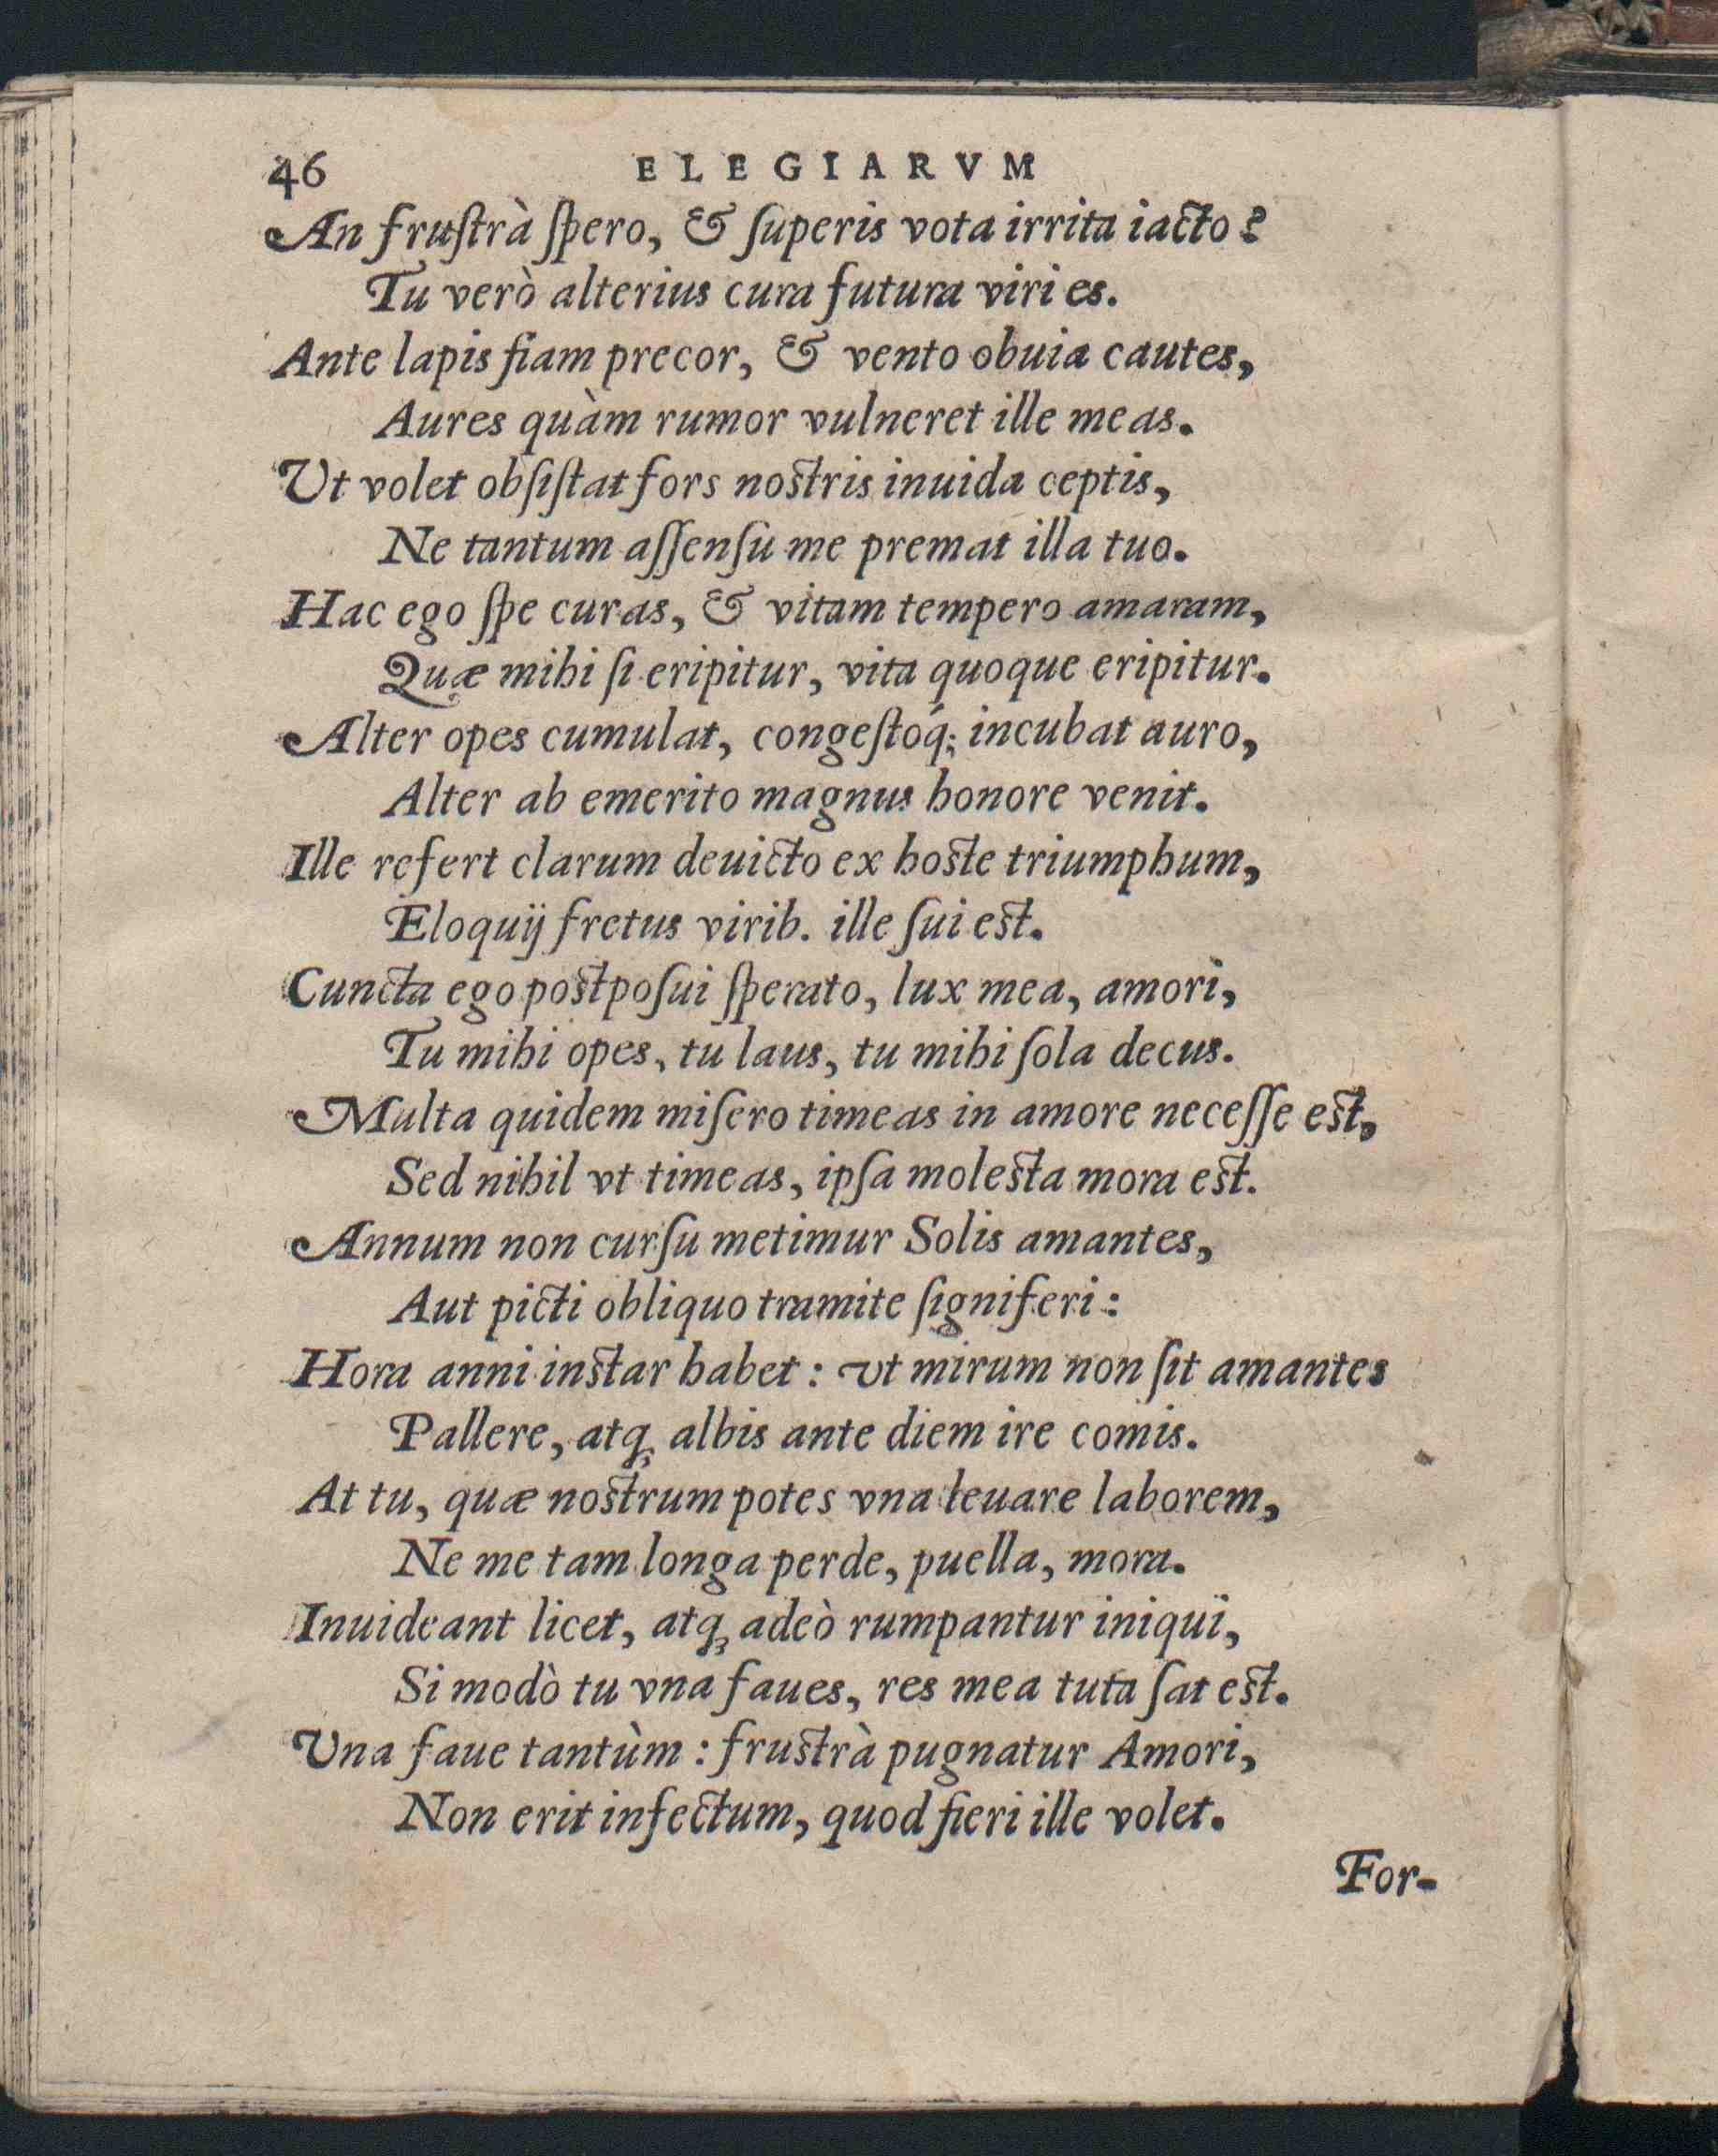 46 ELEGIARVM
An fruſtrà ſpero, & ſuperis vota irrita iacto?
Tu verò alterius cura futura viri es.
Ante lapis fiam precor, & vento obuia cautes,
Aures quàm rumor vulneret ille meas.
Vt volet obſiſtat fors nostris inuida ceptis,
Ne tantum aſſenſu me premat illa tuo.
Hac ego ſpe curas, & vitam tempero amaram,
Quæ mihi ſi eripitur, vita quoque eripitur.
Alter opes cumulat, congeſtoq́; incubat auro,
Alter ab emerito magnus honore venit.
Ille refert clarum deuicto ex hoste triumphum,
Eloquij fretus virib. ille ſui est.
Cuncta ego postpoſui ſperato, lux mea, amori,
Tu mihi opes, tu laus, tu mihi ſola decus.
Multa quidem miſero timeas in amore neceſſe est,
Sed nihil vt timeas, ipſa molesta mora est.
Annum non curſu metimur Solis amantes,
Aut picti obliquo tramite ſigniferi:
Hora anni instar habet: vt mirum non ſit amantes
Pallere, atq; albis ante diem ire comis.
At tu, quæ nostrum potes vna leuare laborem,
Ne me tam longa perde, puella, mora.
Inuideant licet, atq; adeò rumpantur iniqui,
Si modò tu vna faues, res mea tuta ſat est.
Vna faue tantùm: frustrà pugnatur Amori,
Non erit infectum, quod fieri ille volet.
For-